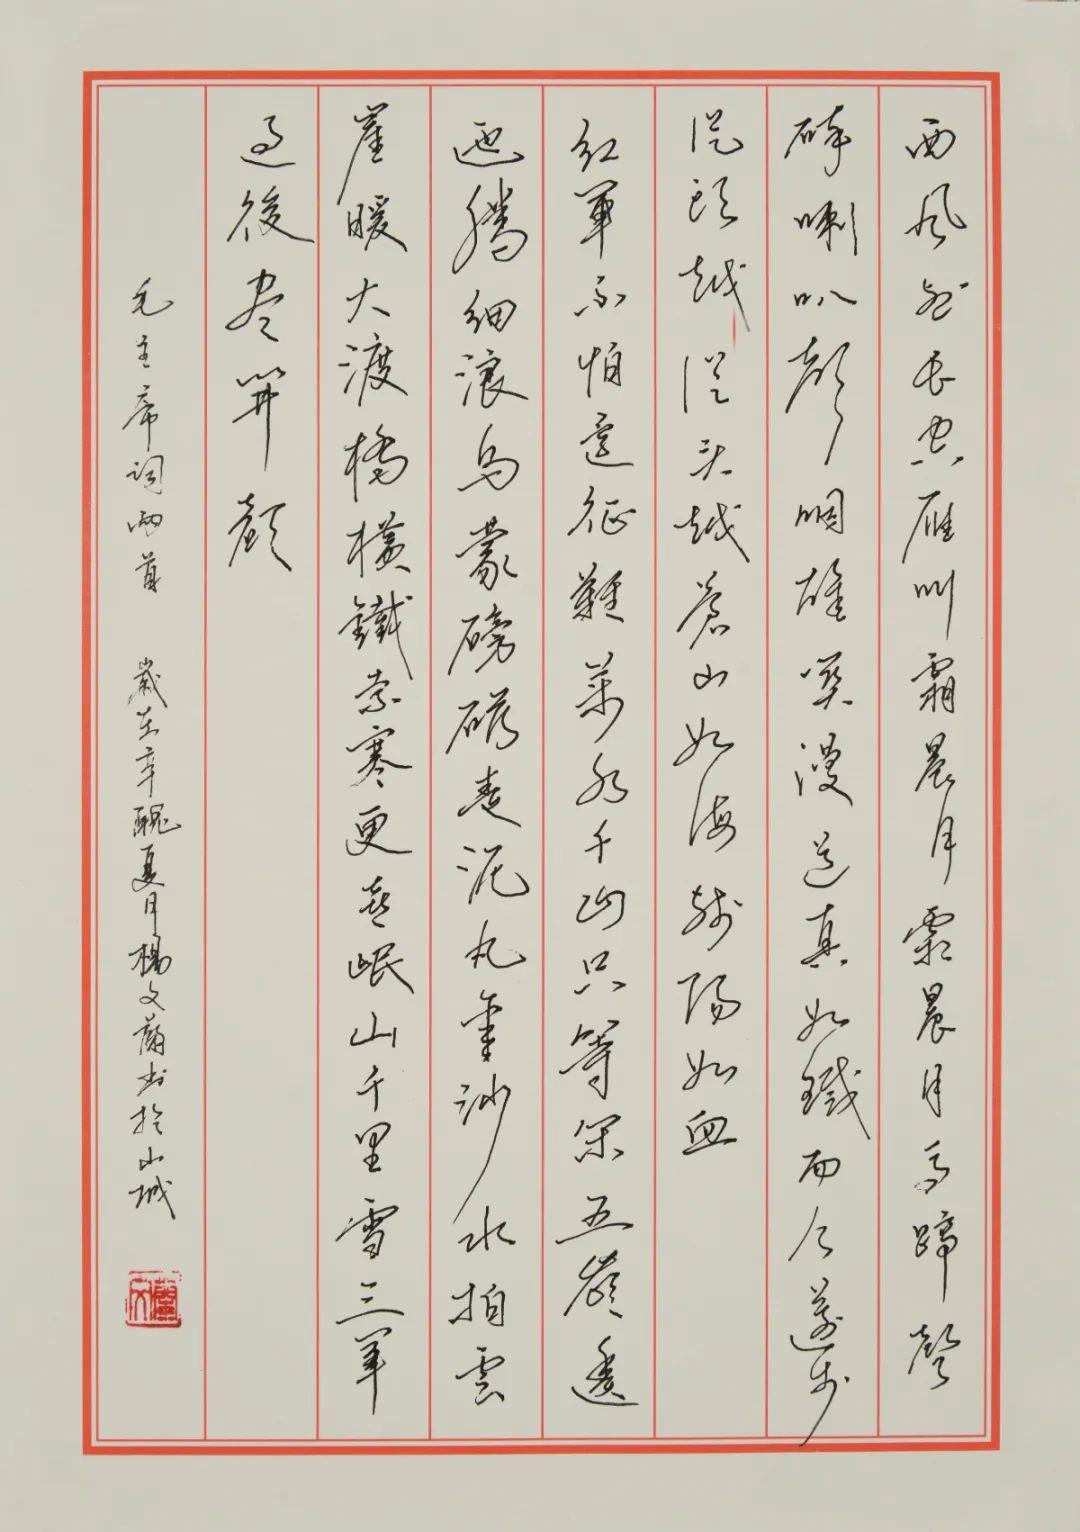 西風烈長空雁叫霜晨月霜晨月馬蹄聲
碎喇叭聲咽雄關漫道真如鐵而今邁步
從頭越從头越蒼山如海殘陽如血
紅軍不怕遠征難萬水千山只等閑五嶺逶
迤騰細浪烏蒙磅礴走泥丸金沙水拍雲
崖暖大渡橋橫鐵索寒更喜岷山千里雪三軍
過後尽開顏
毛主席詞兩首 歲在辛醜夏月楊文蘭书於山城
文蘭